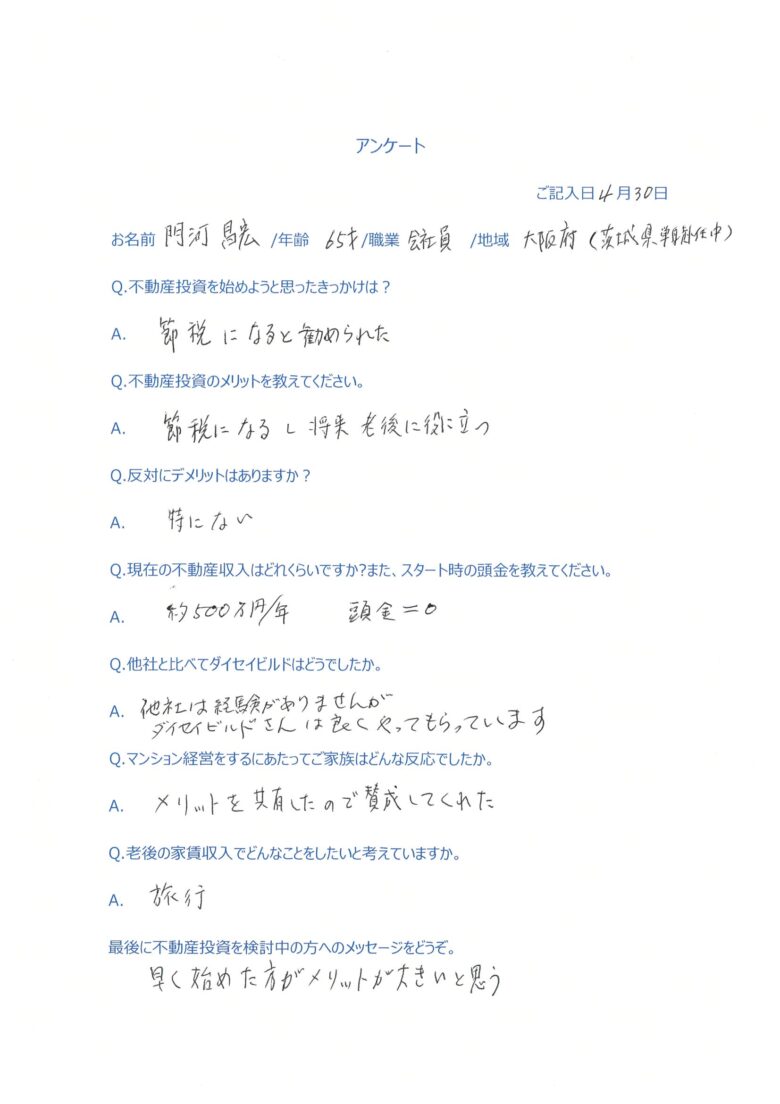 アンケート
ご記入日 4月30日
お名前 門河 昌宏 /年齢 65才 /職業 会社員 /地域 大阪府 (茨城県単身赴任中)
Q.不動産投資を始めようと思ったきっかけは？
A. 節税になると勧められた
Q.不動産投資のメリットを教えてください。
A. 節税になるし将来老後に役に立つ
Q.反対にデメリットはありますか？
A. 特にない
Q.現在の不動産収入はどれくらいですか?また、スタート時の頭金を教えてください。
A. 約500万円/年 頭金=0
Q.他社と比べてダイセイビルドはどうでしたか。
A. 他社は経験がありませんが
ダイセイビルドさんは良くやってもらっています
Q.マンション経営をするにあたってご家族はどんな反応でしたか。
A. メリットを共有したので賛成してくれた
Q.老後の家賃収入でどんなことをしたいと考えていますか。
A. 旅行
最後に不動産投資を検討中の方へのメッセージをどうぞ。
早く始めた方がメリットが大きいと思う